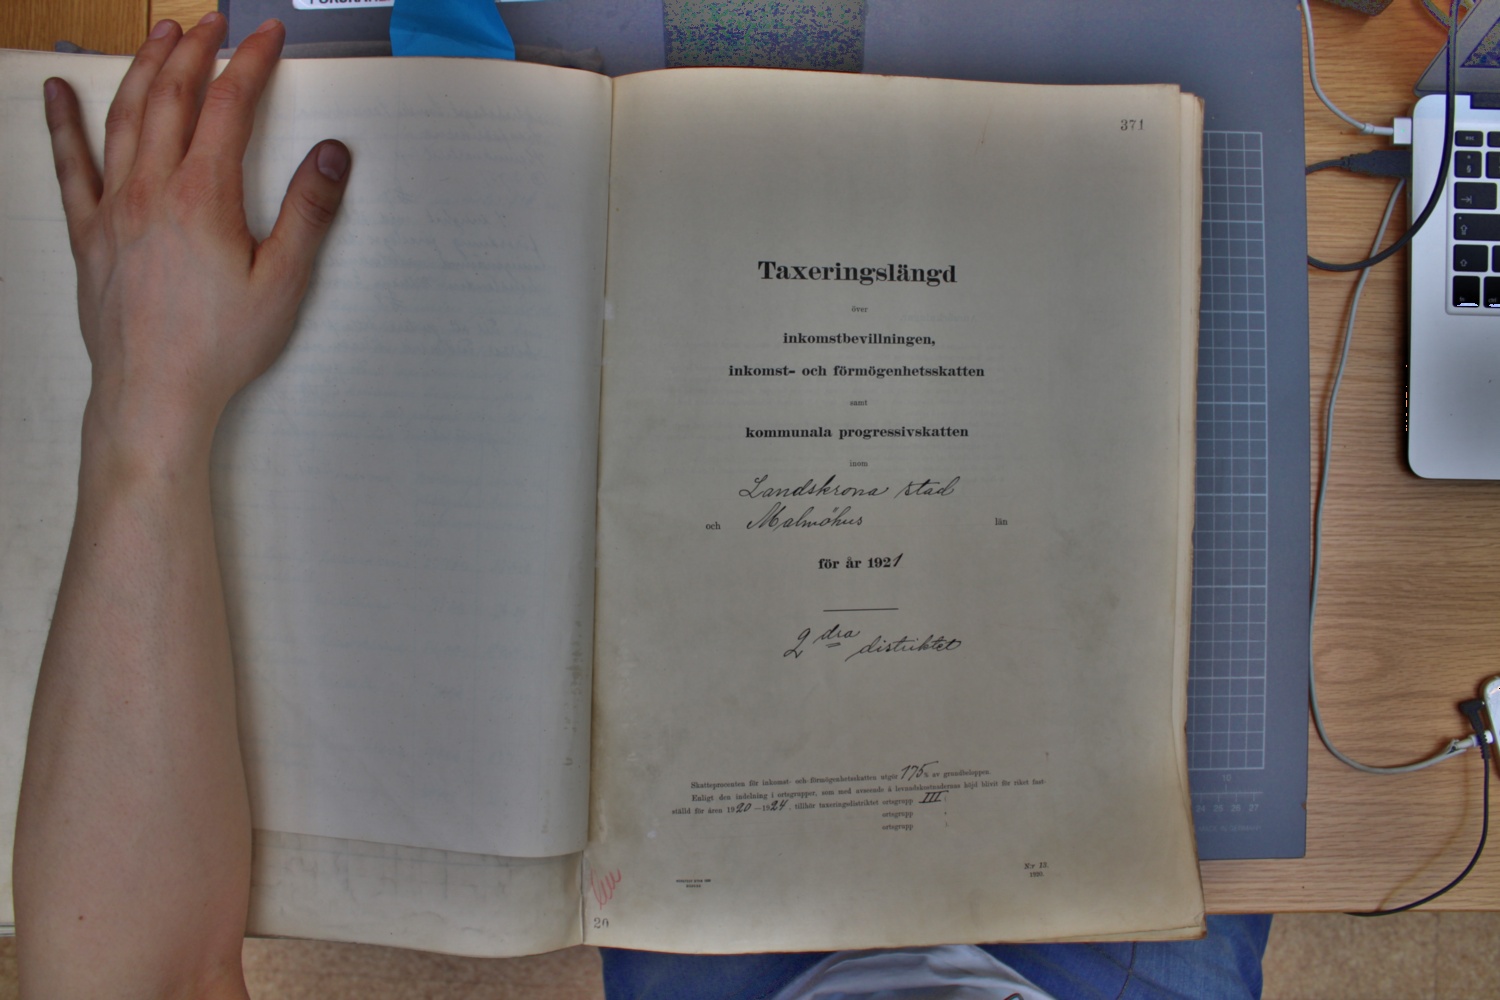 371
Taxeringslängd
över
inkomstbevillningen,
inkomst- och förmögenhetsskatten
samt
kommunala progressivskatten
inom
Landskrona stad
och Malmöhus län
för år 1921
2dra distriktet
Skatteprocenten för inkomst- och förmögenhetsskatten utgör 175 % av grundbeloppen.
Enligt den indelning i ortsgrupper, som med avseende å levnadskostnadernas höjd blivit för riket fast-
ställd för åren 1920—1924, tillhör taxeringsdistriktet ortsgrupp III.
ortsgrupp
ortsgrupp
N:r 13.
1920.
20
10
24 25 26 27